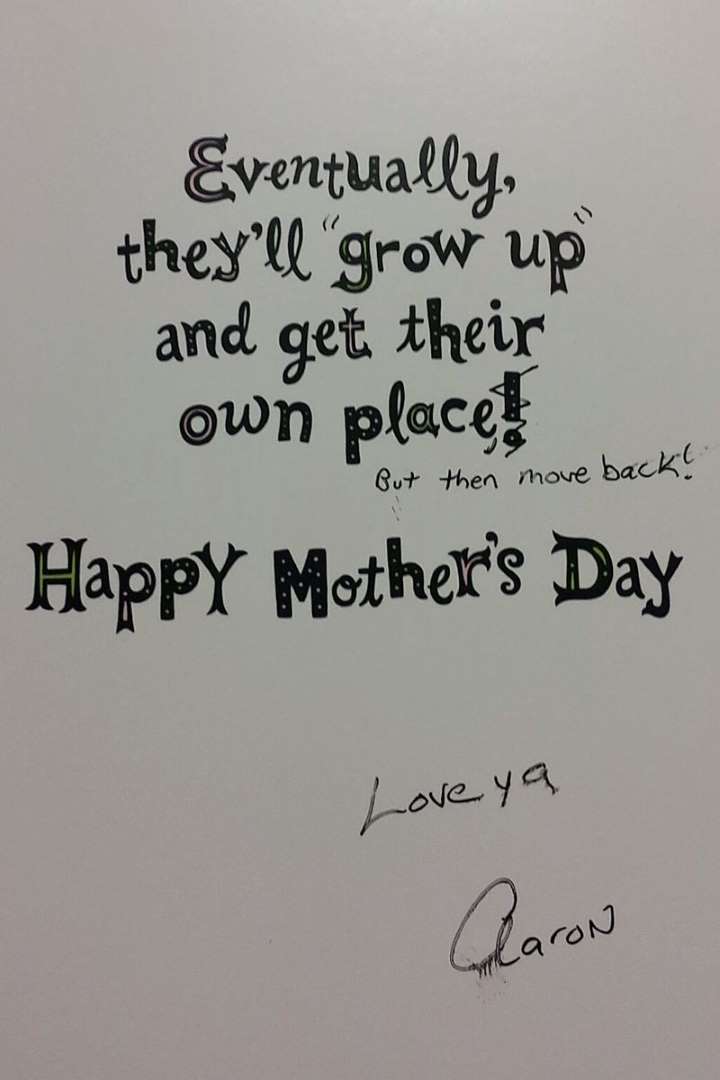 Eventually,
they'll "grow up"
and get their
own place!,
But then move back!
Happy Mother's Day
Love ya
Aaron